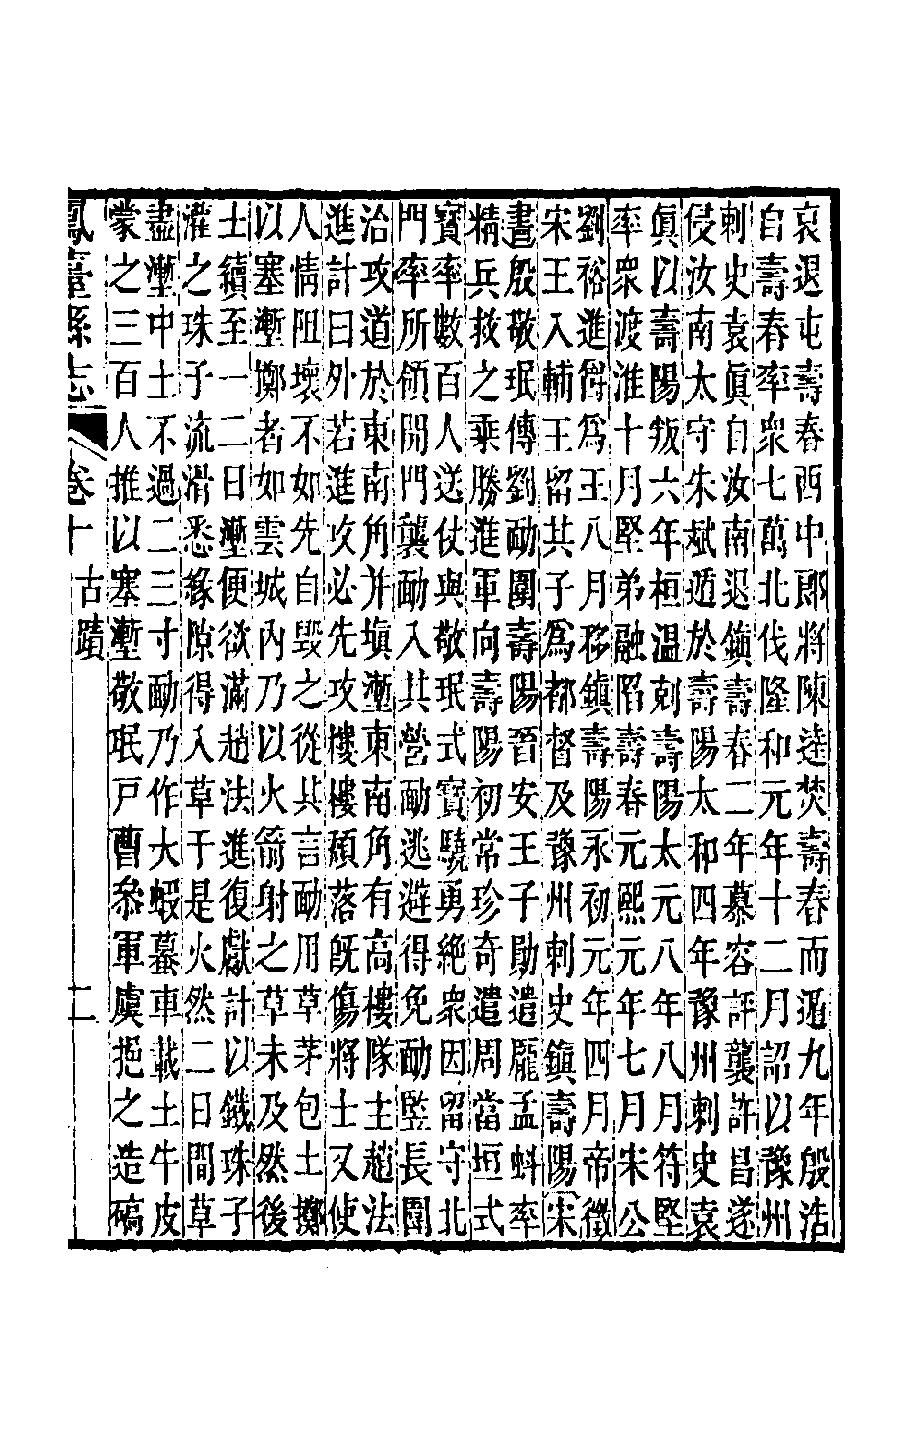 哀退屯壽春西中郎將陳逵焚壽春而遁九年殷浩
自壽春率衆七萬北伐隆和元年十二月詔以豫州
刺史袁眞自汝南退鎭壽春二年慕容評襲許昌遂
侵汝南太守朱斌遁於壽陽太和四年豫州刺史袁
眞以壽陽叛六年桓温刻壽陽太元八年八月符堅
率衆渡淮十月堅弟融陷壽春元熙元年七月宋公
劉裕進爵爲王八月移鎭壽陽永初元年四月帝徵
宋王入輔王留其子爲都督及豫州刺史鎭壽陽宋
書殷敬珉傳劉勔圍壽陽晉安王子勛遣龎孟蚪率
精兵救之乘勝進軍向壽陽初常珍奇遣周當垣式
寳率數百人送仗與敬珉式寳驍勇絶衆因留守北
門率所領開門襲勔入其營勔逃避得免勔監長圍
治攻道於東南角并塡壍東南角有高樓隊主趙法
進計曰外若進攻必先攻樓樓頽落旣傷將士又使
人情阻壞不如先自毀之從其言勔用草茅包土擲
以塞壍擲者如雲城内乃以火箭射之草未及然後
土續至一二日壍便欲滿趙法進復獻計以鐵珠子
灌之珠子流滑悉緣隙得入草于是火然二日間草
盡壍中土不過二三寸勔乃作大蝦蟇車載土牛皮
蒙之三百人推以塞壍敬珉戸曹叅軍虞挹之造礮
鳳臺縣志 卷十 古蹟 二